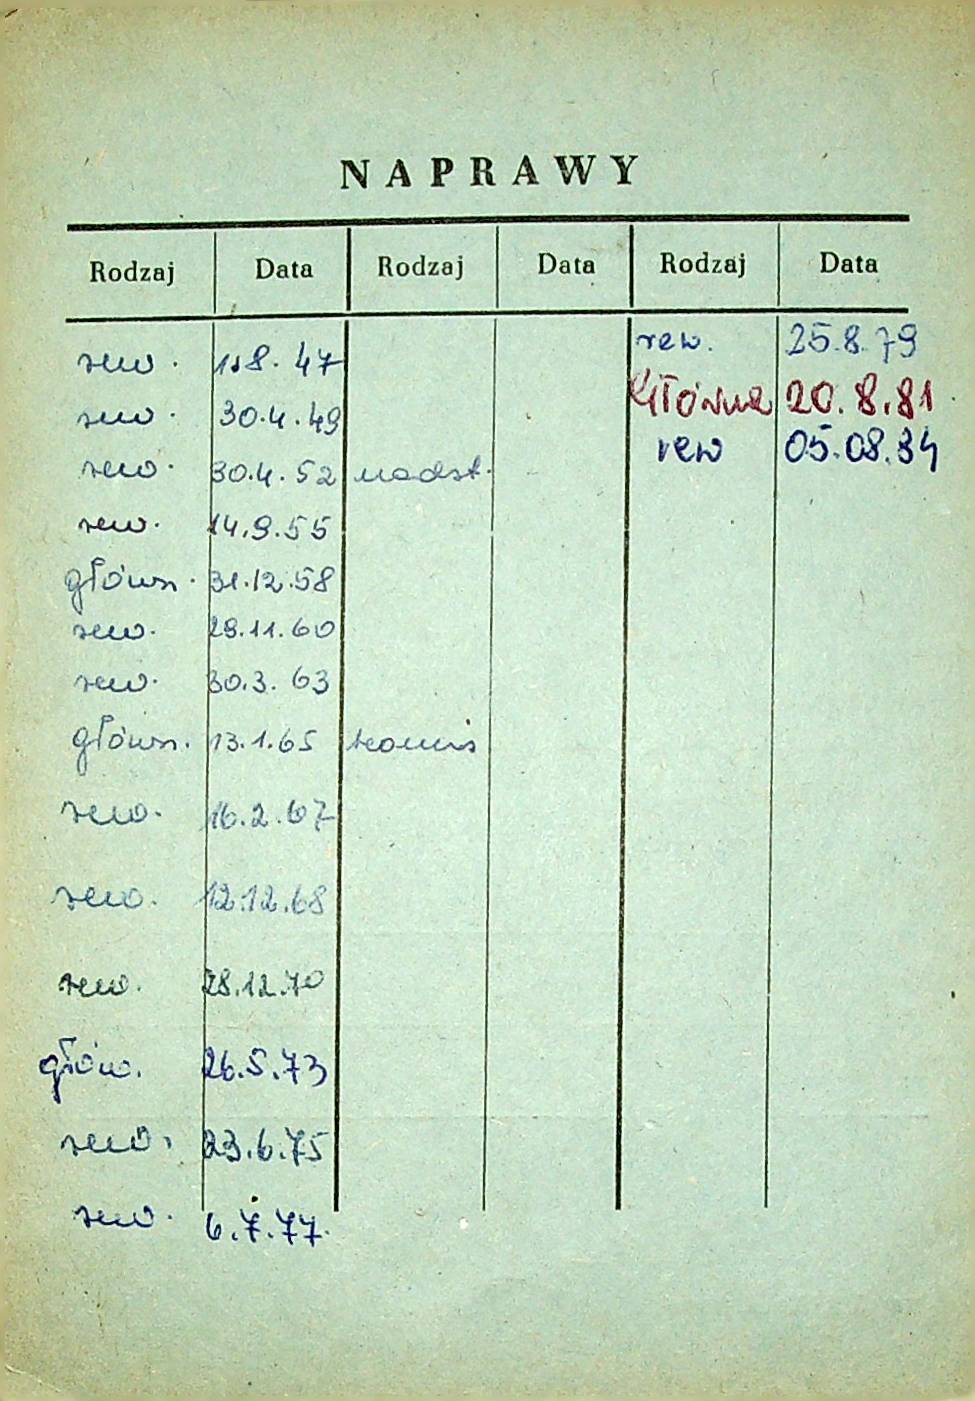 NAPRAWY
Rodzaj Data Rodzaj Data Rodzaj Data
rew. 1.8.47
rew. 30.4.49
rew. 30.4.52 nadst.
rew. 14.9.55
główn. 31.12.58
rew. 29.11.60
rew. 30.3.63
główn. 13.1.65
rew. 16.2.67
rew. 12.12.68
rew. 28.12.70
głów. 26.5.73
rew. 23.6.75
rew. 6.7.77.
rew. 25.8.79
Główna 20.8.81
rew 05.08.84